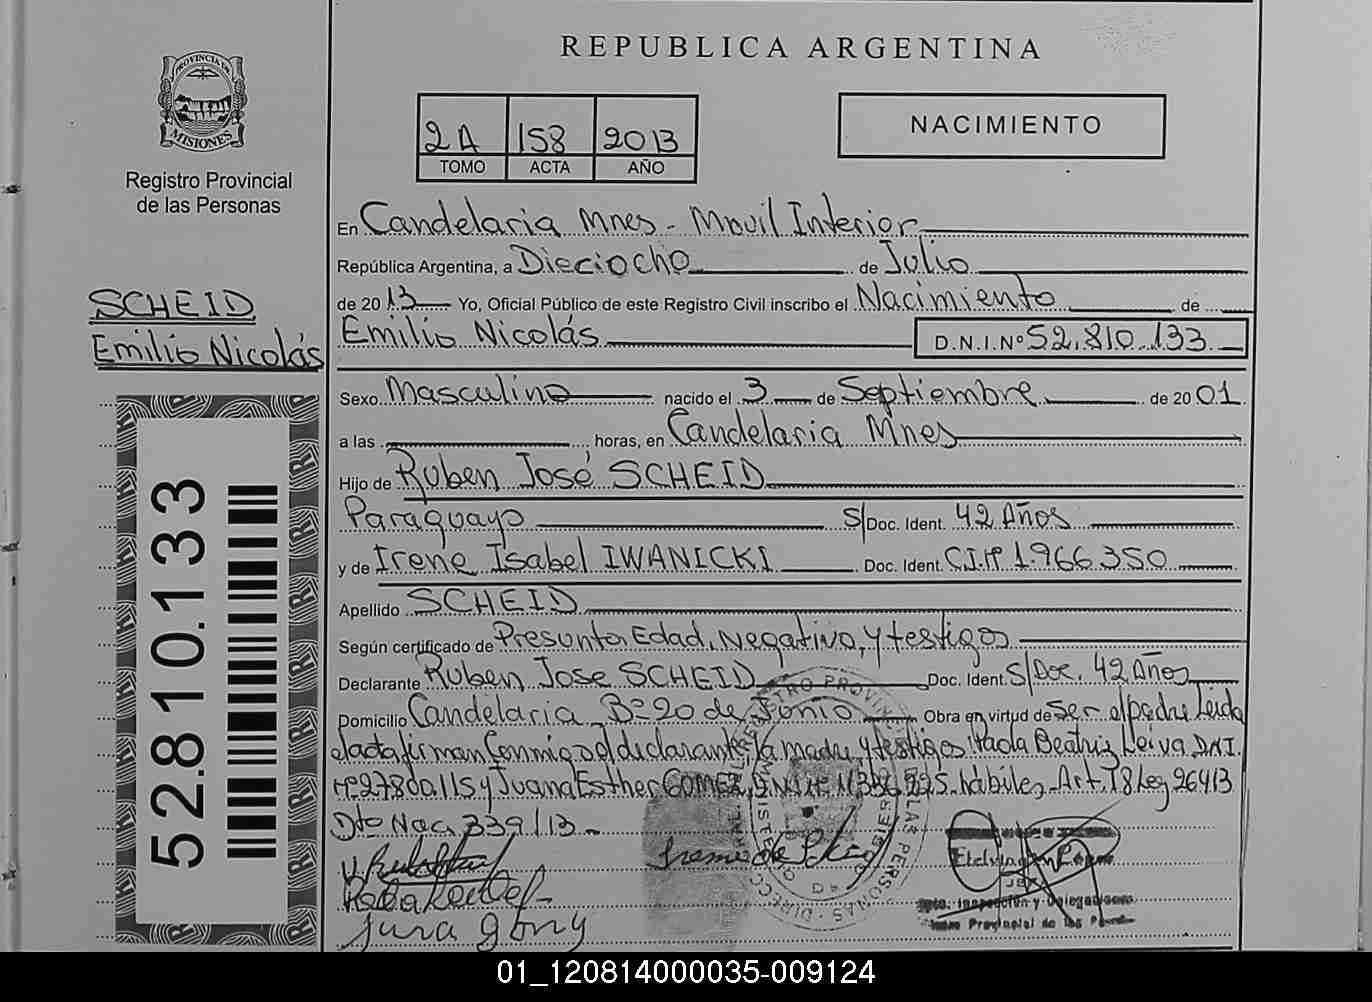 REPUBLICA ARGENTINA
PROVINCIA DE
MISIONES
Registro Provincial
de las Personas
2A 158 2013
TOMO ACTA AÑO
NACIMIENTO
SCHEID
Emilio Nicolás
52.810.133
En Candelaria Mnes - Movil Interior
República Argentina, a Dieciocho de Julio
de 2013 Yo, Oficial Público de este Registro Civil inscribo el Nacimiento de
Emilio Nicolás D.N.I.Nº 52.810.133
Sexo Masculino nacido el 3 de Septiembre de 2001
a las horas, en Candelaria Mnes
Hijo de Ruben José SCHEID
Paraguayo S/Doc. Ident. 42 Años
y de Irene Isabel IWANICKI Doc. Ident. C.I.Nº 1.966.350
Apellido SCHEID
Según certificado de Presunta Edad, Negativo, y testigos
Declarante Ruben Jose SCHEID Doc. Ident. S/Doc. 42 Años
Domicilio Candelaria Bº 20 de Junio Obra en virtud de Ser el padre Leida
el acta firman Conmigo el declarante, la madre y testigos Paola Beatriz Leiva D.N.I.
Nº 27800.115 y Juana Esther GOMEZ D.N.I.Nº 11.336.925. hábiles - Art. 18 Ley 26413
Dto Nac. 339/13 -
01_120814000035-009124